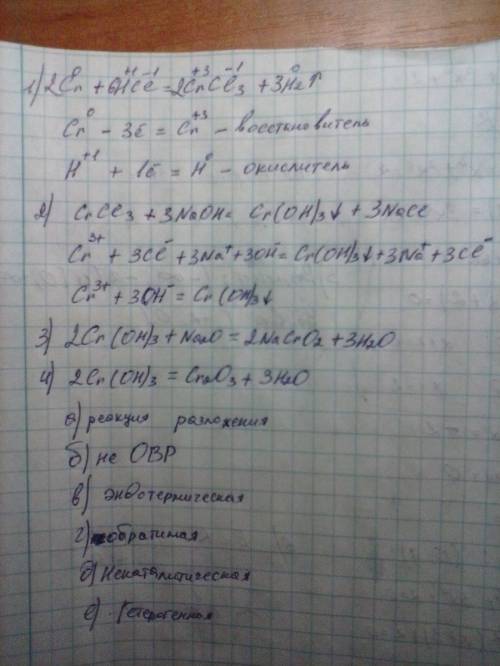 1) 2Cr⁰ + 6H⁺¹Cl⁻¹ = 2Cr⁺³Cl₃⁻¹ + 3H₂⁰↑
Cr⁰ - 3ē = Cr⁺³ - восстановитель
H⁺¹ + 1ē = H⁰ - окислитель
2) CrCl₃ + 3NaOH = Cr(OH)₃↓ + 3NaCl
Cr³⁺ + 3Cl⁻ + 3Na⁺ + 3OH⁻ = Cr(OH)₃↓ + 3Na⁺ + 3Cl⁻
Cr³⁺ + 3OH⁻ = Cr(OH)₃↓
3) 2Cr(OH)₃ + Na₂O = 2NaCrO₂ + 3H₂O
4) 2Cr(OH)₃ = Cr₂O₃ + 3H₂O
а) реакция разложения
б) не ОВР
в) эндотермическая
г) обратимая
д) Некаталитическая
е) Гетерогенная